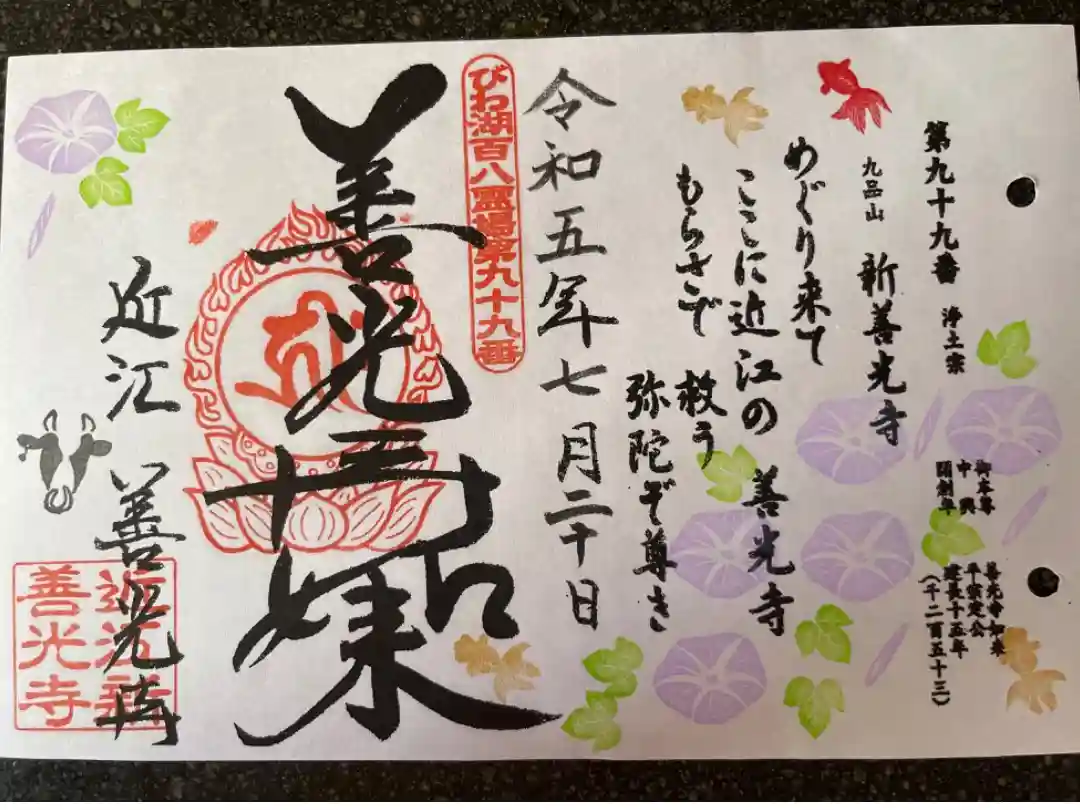 第九十九番 浄土宗
九品山 新善光寺
御本尊 善光寺如来
中興 平宗定公
開創年 建長十五年
(千二百五十三)
めぐり来て
ここに近江の 善光寺
もらさで 救う
弥陀ぞ尊き
令和五年七月二十日
びわ湖百八霊場第九十九番
善光寺如来
近江 善光寺
近江新
善光寺